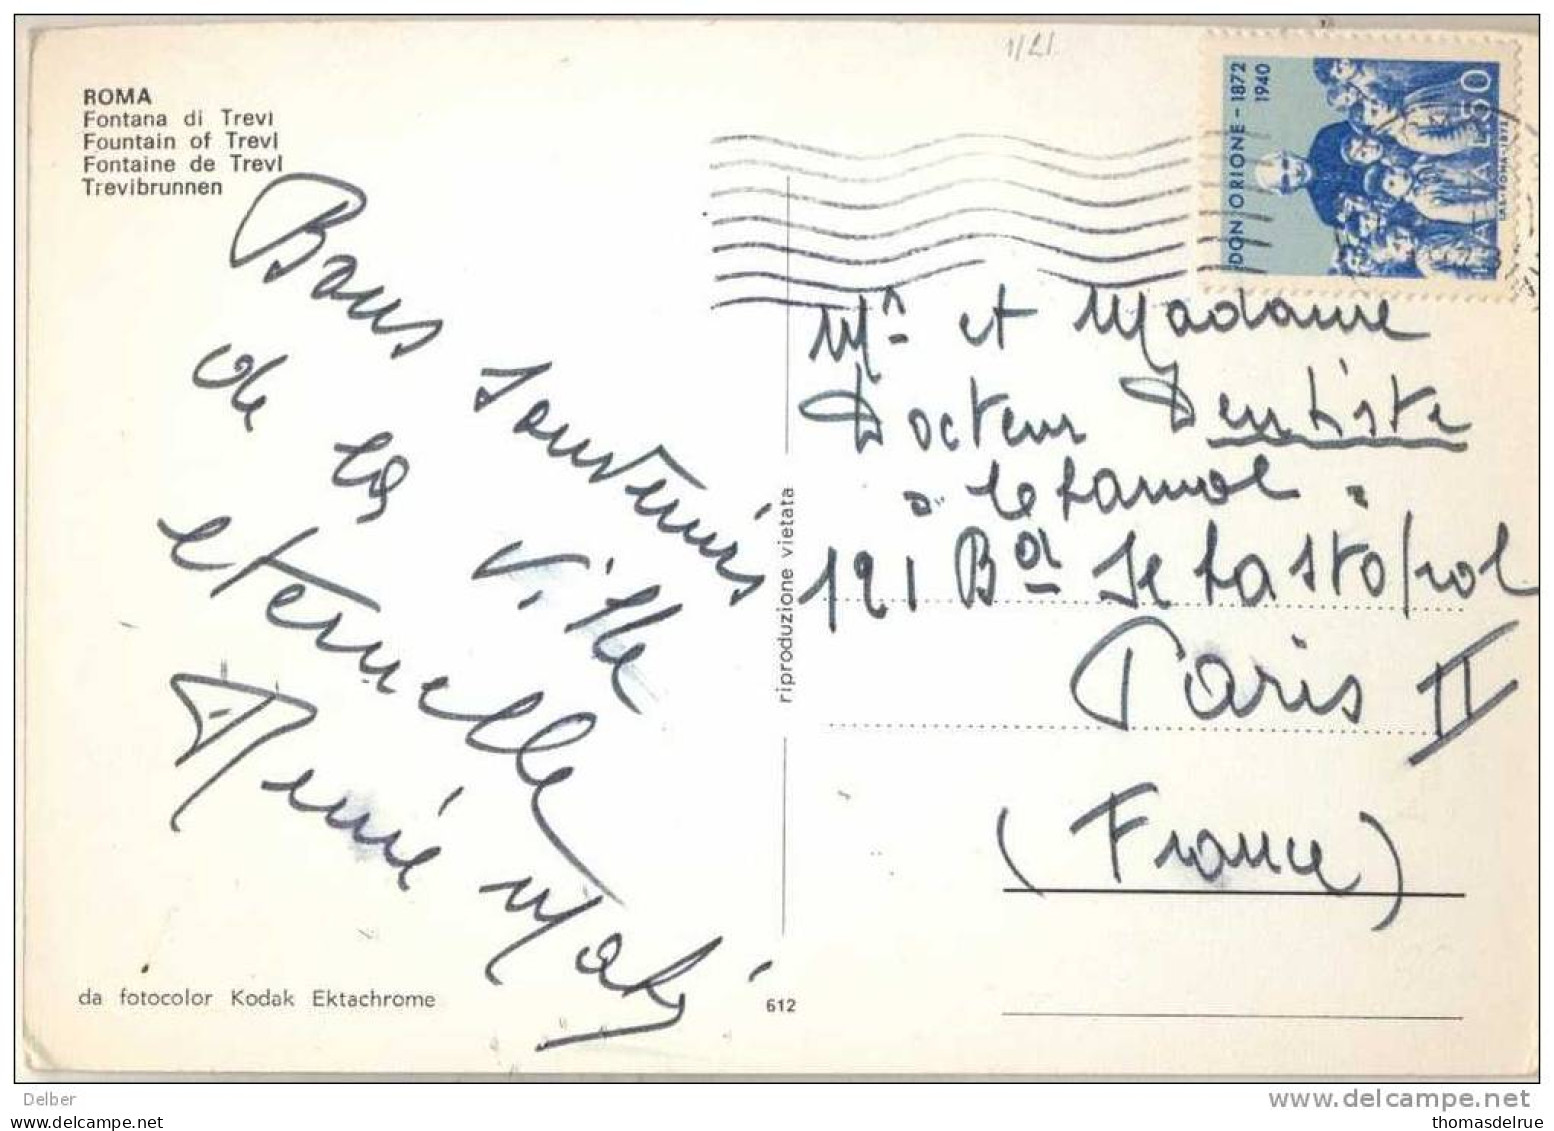 1/21
ROMA
Fontana di Trevi
Fountain of Trevi
Fontaine de Trevi
Trevibrunnen
DON ORIONE - 1872
1940
ITALIA L.50
I.P.S.-ROMA-1972
Bons souvenirs
de la Ville
eternelle
René
riproduzione vietata
Mr et Madame
Docteur Dentiste
121 Bd Sebastopol
Paris II
(France)
da fotocolor Kodak Ektachrome
612
Delber
www.delcampe.net
thomasdelrue